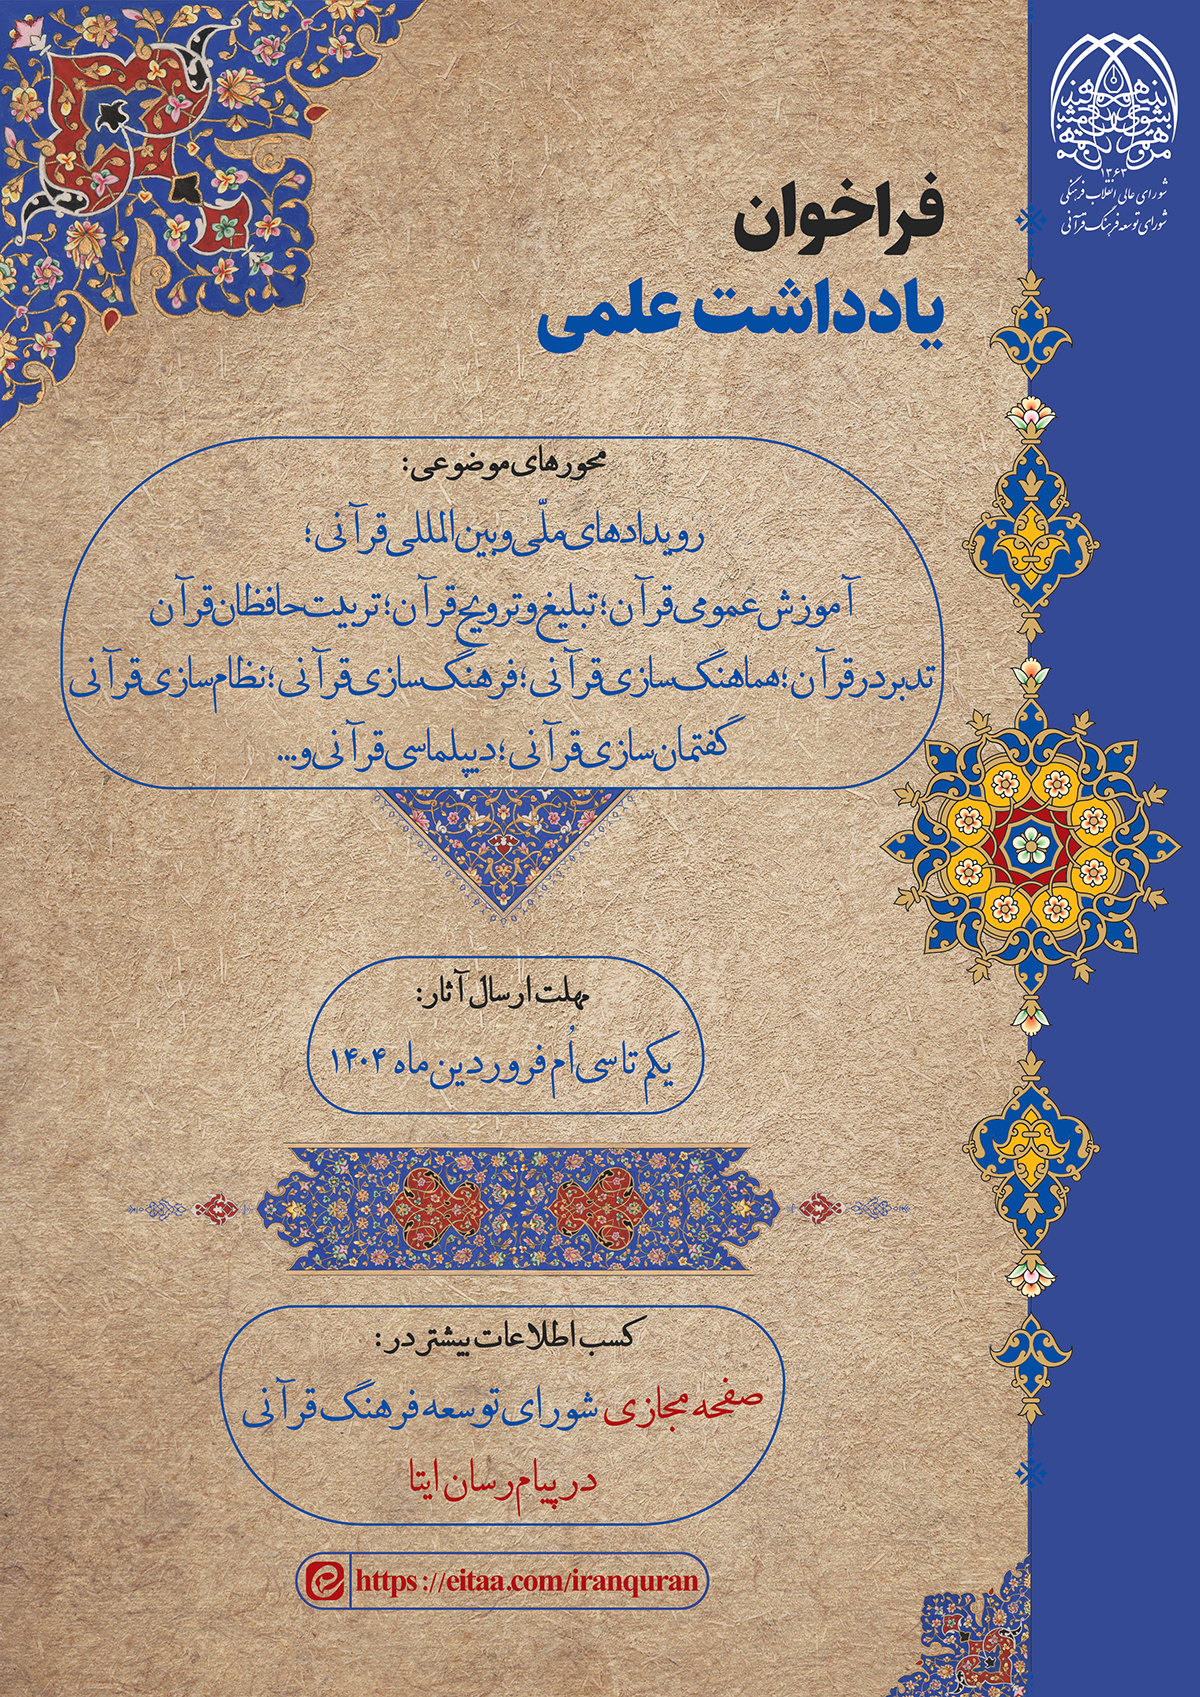 ۱۳۶۳
شورای عالی انقلاب فرهنگی
شورای توسعه فرهنگ قرآنی
فراخوان
یادداشت علمی
محورهای موضوعی:
رویدادهای ملّی و بین‌المللی قرآنی؛
آموزش عمومی قرآن؛ تبلیغ و ترویج قرآن؛ تربیت حافظان قرآن
تدبر در قرآن؛ هماهنگ‌سازی قرآنی؛ فرهنگ‌سازی قرآنی؛ نظام‌سازی قرآنی
گفتمان‌سازی قرآنی؛ دیپلماسی قرآنی و...
مهلت ارسال آثار:
یکم تا سی اُم فروردین ماه ۱۴۰۴
کسب اطلاعات بیشتر در:
صفحه مجازی شورای توسعه فرهنگ قرآنی
در پیام رسان ایتا
https://eitaa.com/iranquran